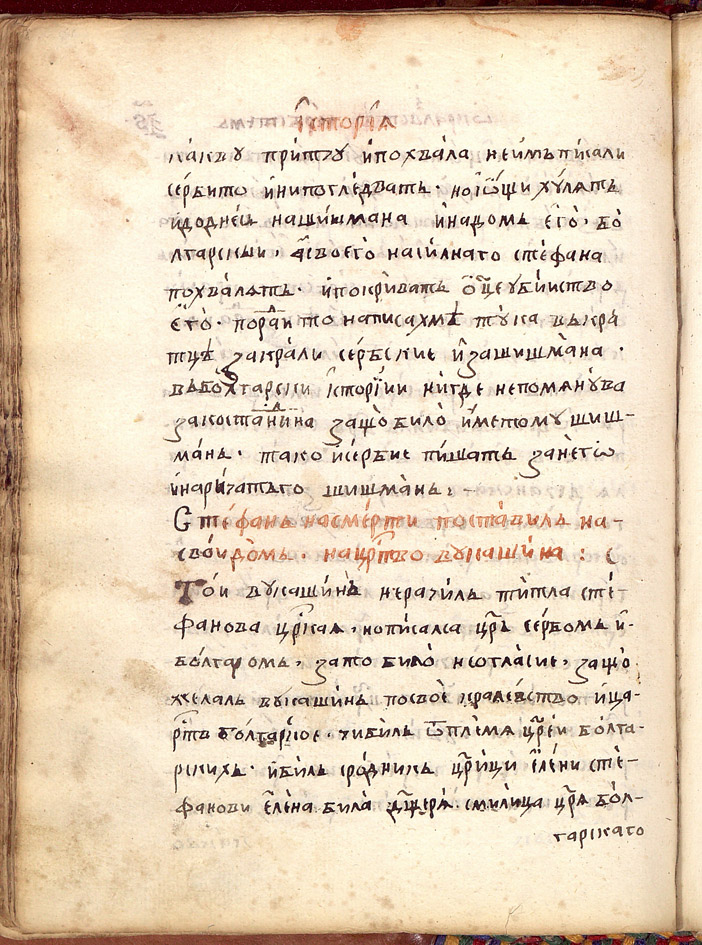 їсторїꙗ
какву притчу и похвала неимъ писали
сербито и ни погледвать · но їѡщи хулꙗть
и доднесь на шишмана и надомь его · бо-
лгарскыи , а своего насилнаго стефана
похвалꙗть · и покривать ѿцеубииство
его · поради то написахмѣ тука вькра
тцѣ за крали сербские и за шишмана ·
вьболгарски їсторїи нигде непоменува
за костанина защо било име тому шиш-
мань · тако и сербие пишать за него
и наричать го шишмань : -
Стефань на смерти поставиль на
свои домь · на црство вукашина :
Той вукашинь нерачиль титла сте
фанова црскаꙗ , но писалса црь сербомь и
болгаромь , зато било несогласие , защо
желаль вукашинь по свое кралевство и ца-
рств болгарское · чибиль ѿ племꙗ црей болга-
рскихь · и биль сродникь црици елени сте-
фанови елена била дщерꙗ смилица црꙗ бол-
гарскаго